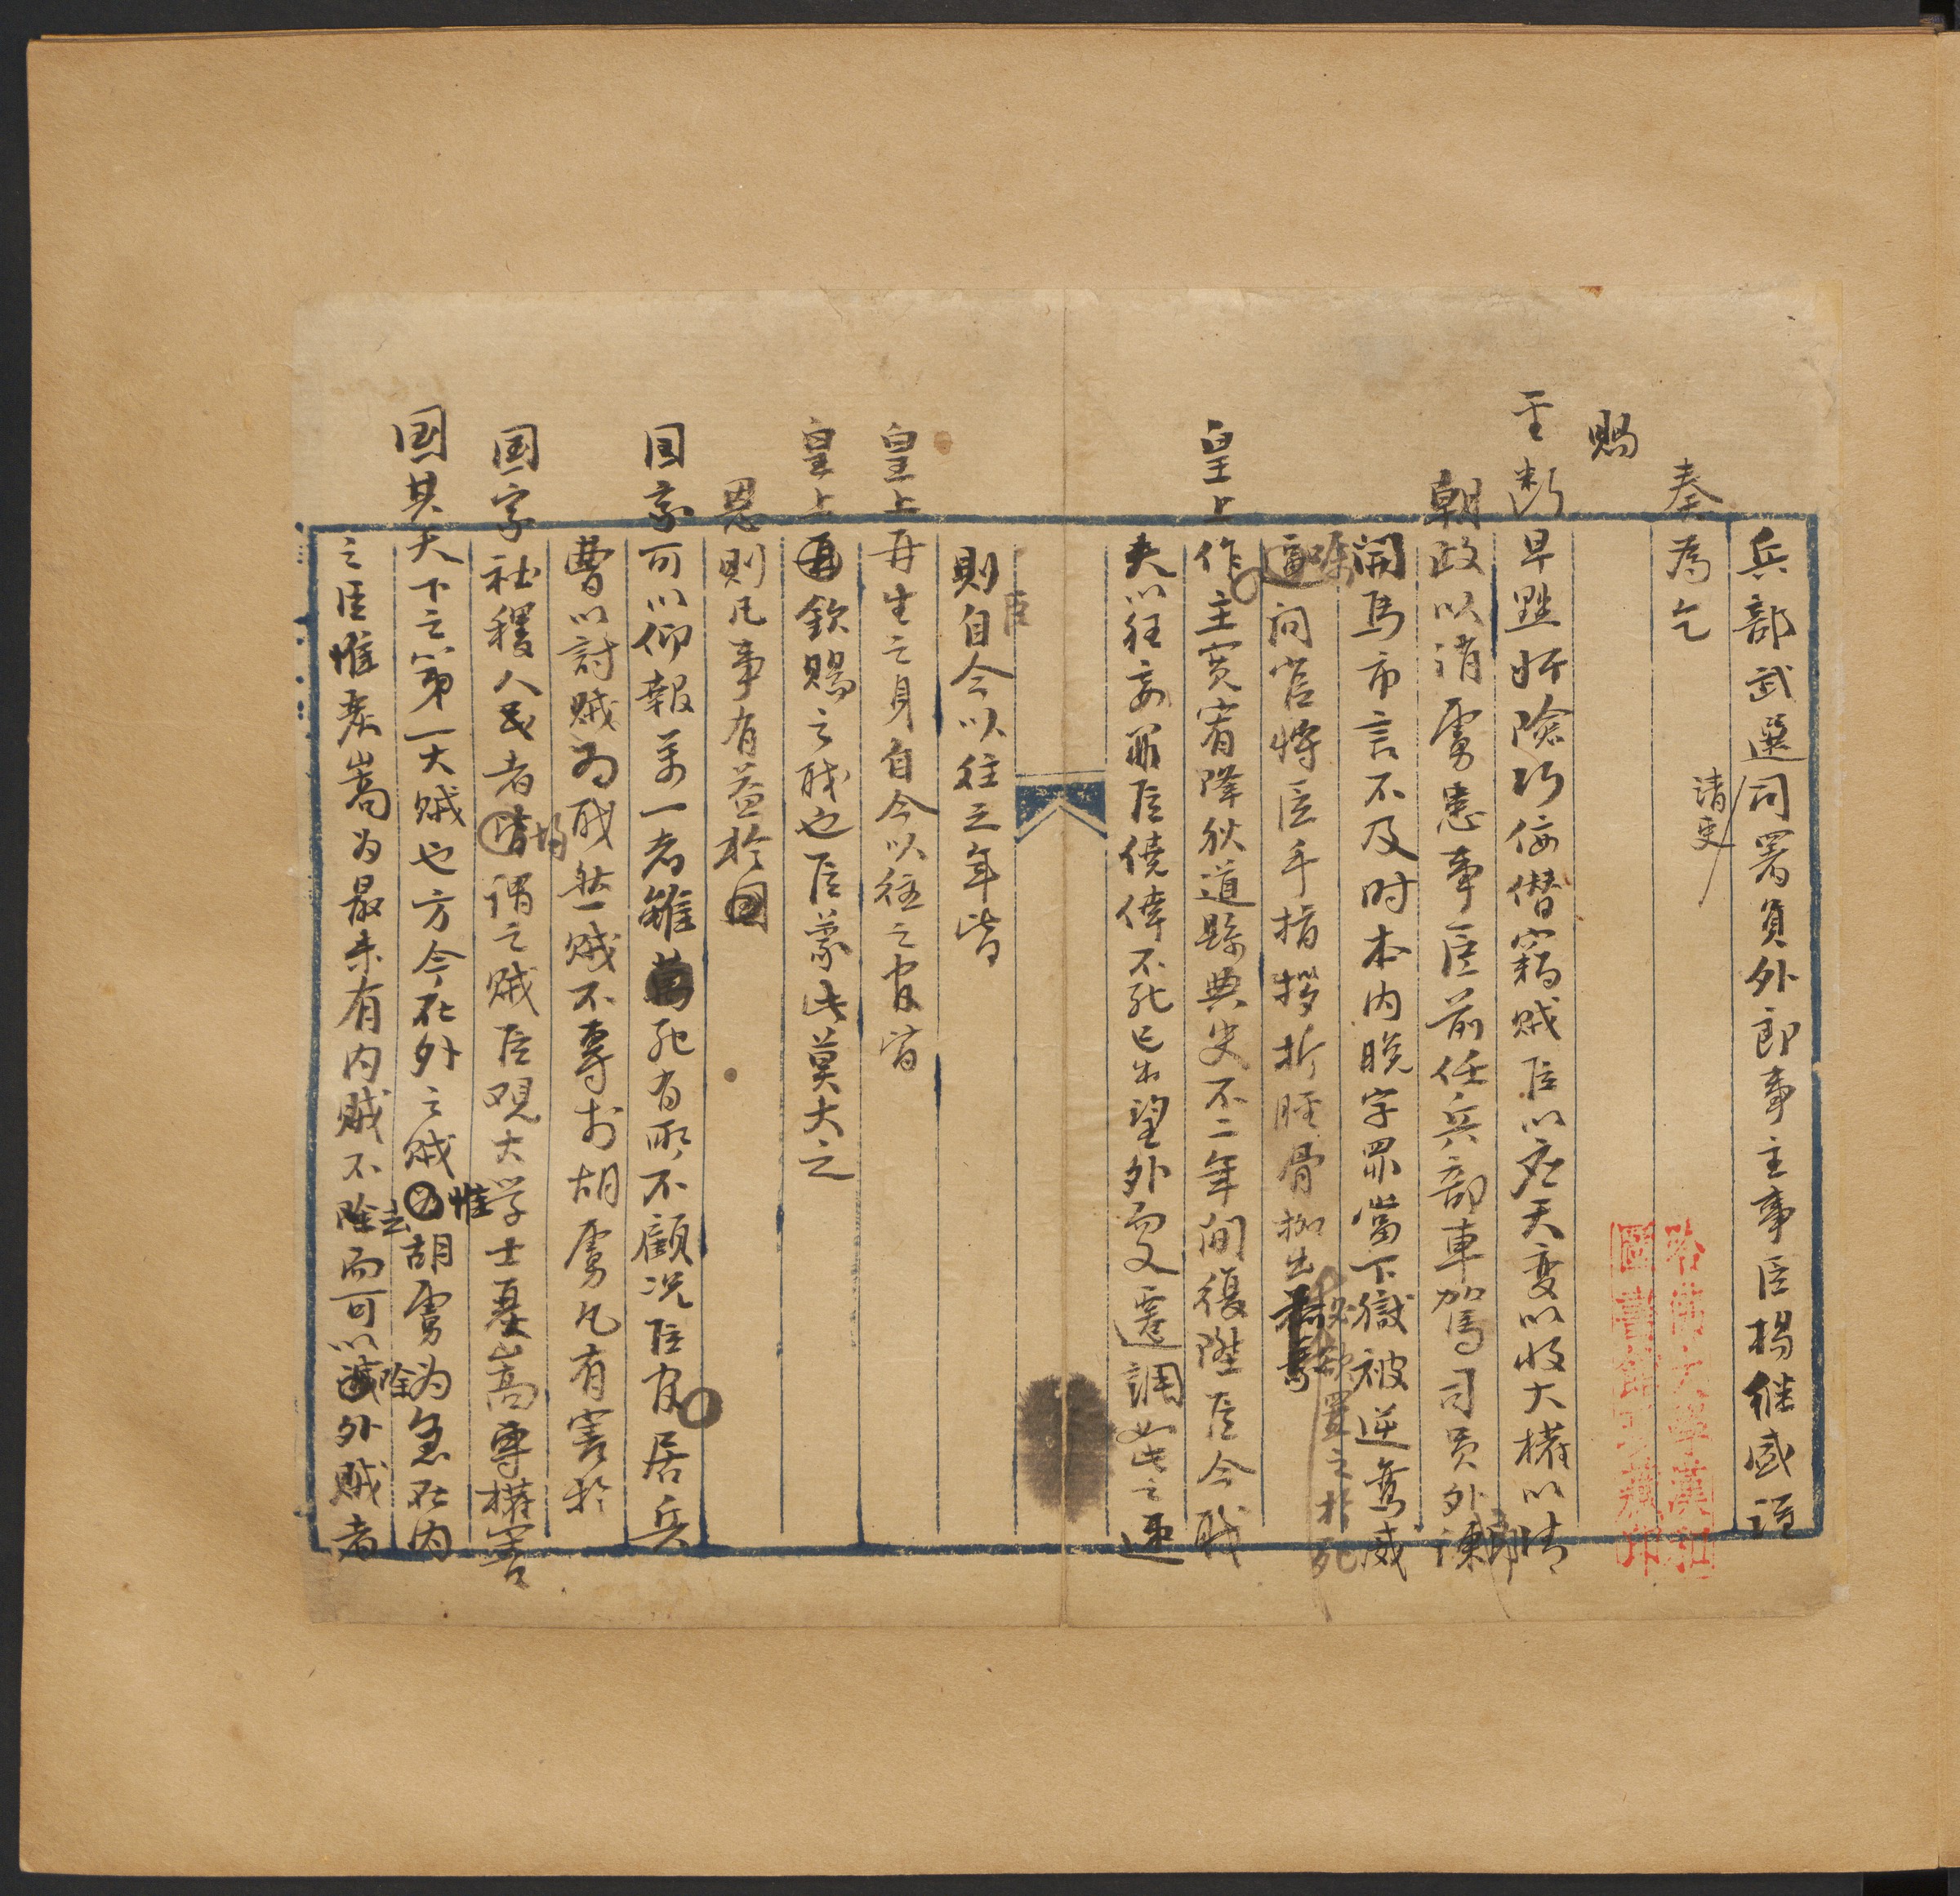 兵部武選司署員外郎事主事臣楊継盛謹
奏為乞
清史
賜
圣断早䵝奸險巧佞僭竊贼臣以應天变以收大權以清
朝政以消虜患事臣前任兵部車駕司員外郎諫
開馬市言不及时本内脱字罪當下獄被逆鸞威
嘱問官將臣手指拶折脛骨枷出必欲置之於死
皇上作主寛宥降狄道縣典史不二年間復陞臣今职
夫以狂妄罪臣僥倖不死已出望外而又遷調如此之速
臣
則自今以往之年皆
皇上再生之身自今以往之官皆
皇上再欽賜之职也臣蒙此莫大之
恩則凡事有益於国
国家可以仰報萬一者雖死有所不顧况臣官居兵
曹以討贼为职然贼不專於胡虜凡有害於
国家社稷人民者均謂之贼臣观大学士嚴嵩專權害
国其天下之第一大贼也方今在外之贼惟胡虜为急在内
之臣惟嚴嵩为最未有内贼不去而可以除外贼者
哈佛大學漢和
圖書館珍藏印